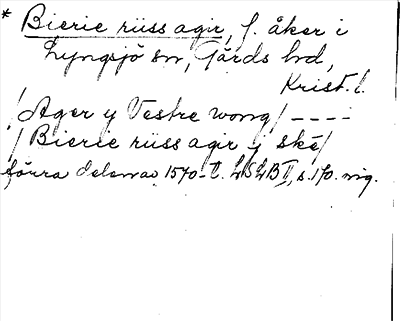 * Bierie rüss agir, f. åker i
Lyngsjö sn, Gärds hd,
Krist. l.
/Ager y Vestre wong/ ----
/Bierie rüss agir y ske/
södra delen av 1570-t. LSLB II, s. 170. mg.